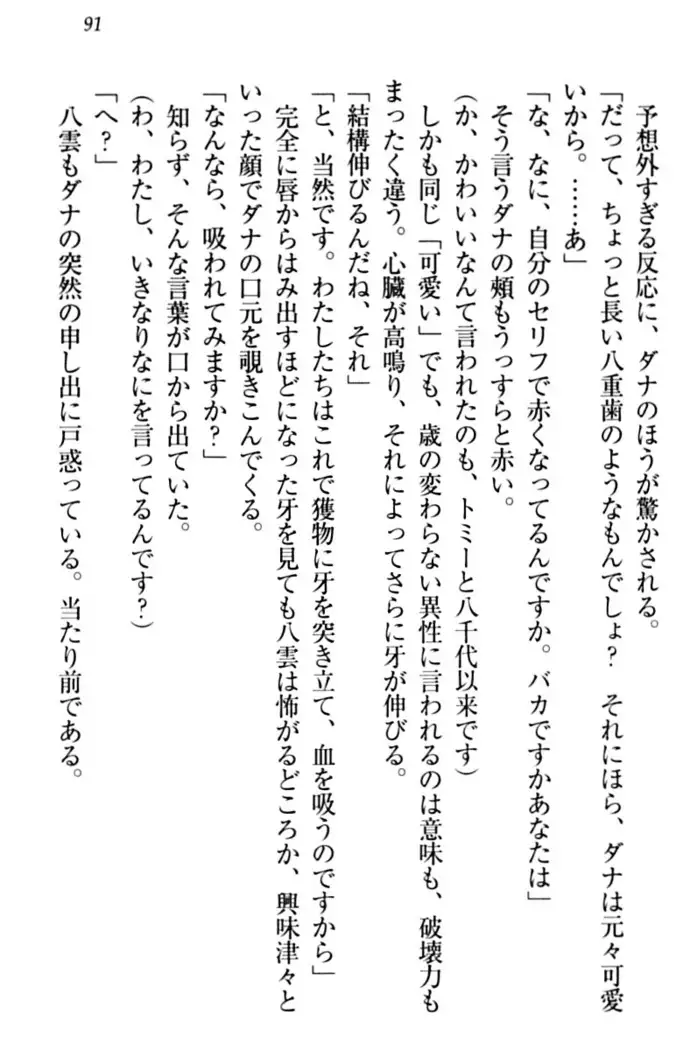 91
予想外すぎる反応に、ダナのほうが驚かされる。
「だって、ちょっと長い八重歯のようなもんでしょ？　それにほら、ダナは元々可愛
いから。……あ」
「な、なに、自分のセリフで赤くなってるんですか。バカですかあなたは」
そう言うダナの頬もうっすらと赤い。
（か、かわいいなんて言われたのも、トミーと八千代以来です）
しかも同じ「可愛い」でも、歳の変わらない異性に言われるのは意味も、破壊力も
まったく違う。心臓が高鳴り、それによってさらに牙が伸びる。
「結構伸びるんだね、それ」
「と、当然です。わたしたちはこれで獲物に牙を突き立て、血を吸うのですから」
完全に唇からはみ出すほどになった牙を見ても八雲は怖がるどころか、興味津々と
いった顔でダナの口元を覗きこんでくる。
「なんなら、吸われてみますか？」
知らず、そんな言葉が口から出ていた。
（わ、わたし、いきなりなにを言ってるんです？）
「へ？」
八雲もダナの突然の申し出に戸惑っている。当たり前である。